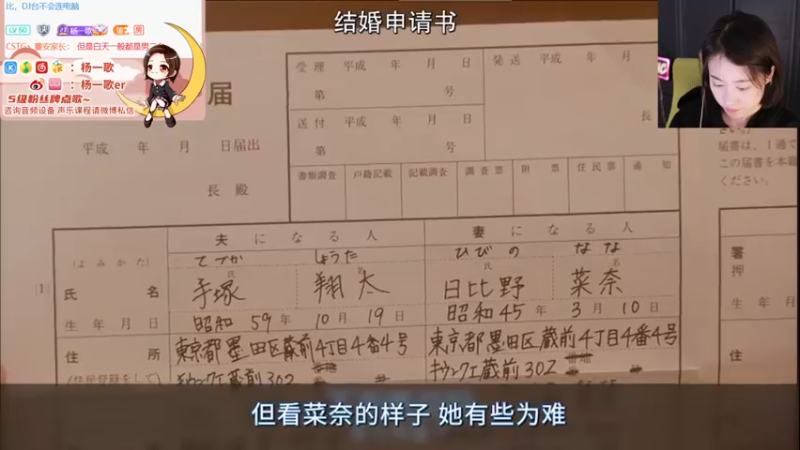 比，DJ台不会连电脑
LV 50 杨一歌
CSTG：曹安家长：但是白天一般都是男
：杨一歌
：杨一歌er
5级粉丝牌点歌~
咨询音频设备 声乐课程请微博私信
结婚申请书
届
平成 年 月 日届出
長 殿
受理 平成 年 月 日
第 号
送付 平成 年 月 日
第 号
発送 平成 年 月 日
長
書類調査 戸籍記載 記載調査 調査票 附票 住民票 通知
届書は、1通で
この届書を本籍
ください。
夫になる人
妻になる人
(よみかた)
てづか しょうた
ひびの なな
氏 名
手塚 翔太
日比野 菜奈
生年月日
昭和59年10月19日
昭和45年3月10日
住所
東京都墨田区蔵前4丁目4番4号
東京都墨田区蔵前4丁目4番4号
(住民登録をして
キウンクエ蔵前302
キウンクエ蔵前302
署
押
生年
住
但看菜奈的样子 她有些为难